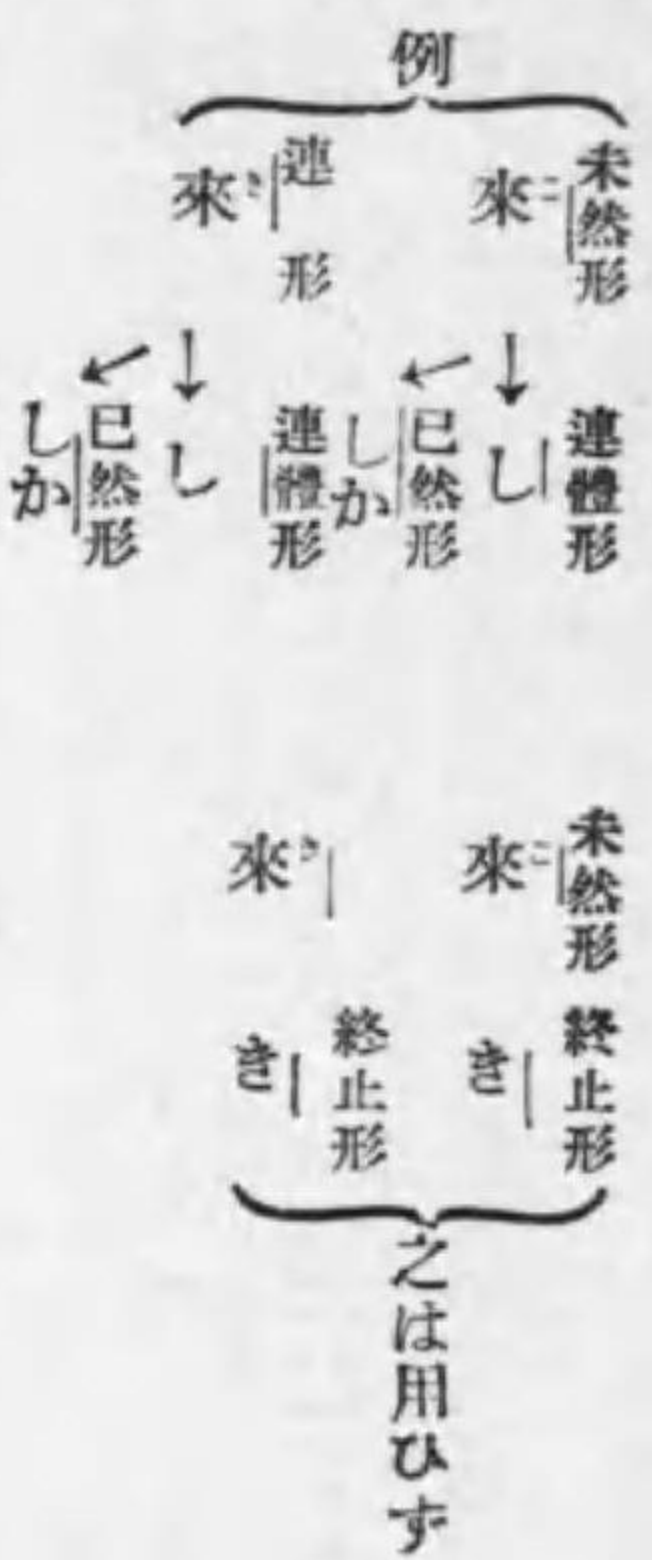 例
未然形
來こ
連體形
し
已然形
しか
連 形
來き
連體形
し
已然形
しか
未然形
來こ
終止形
き
來き
終止形
き
之は用ひず